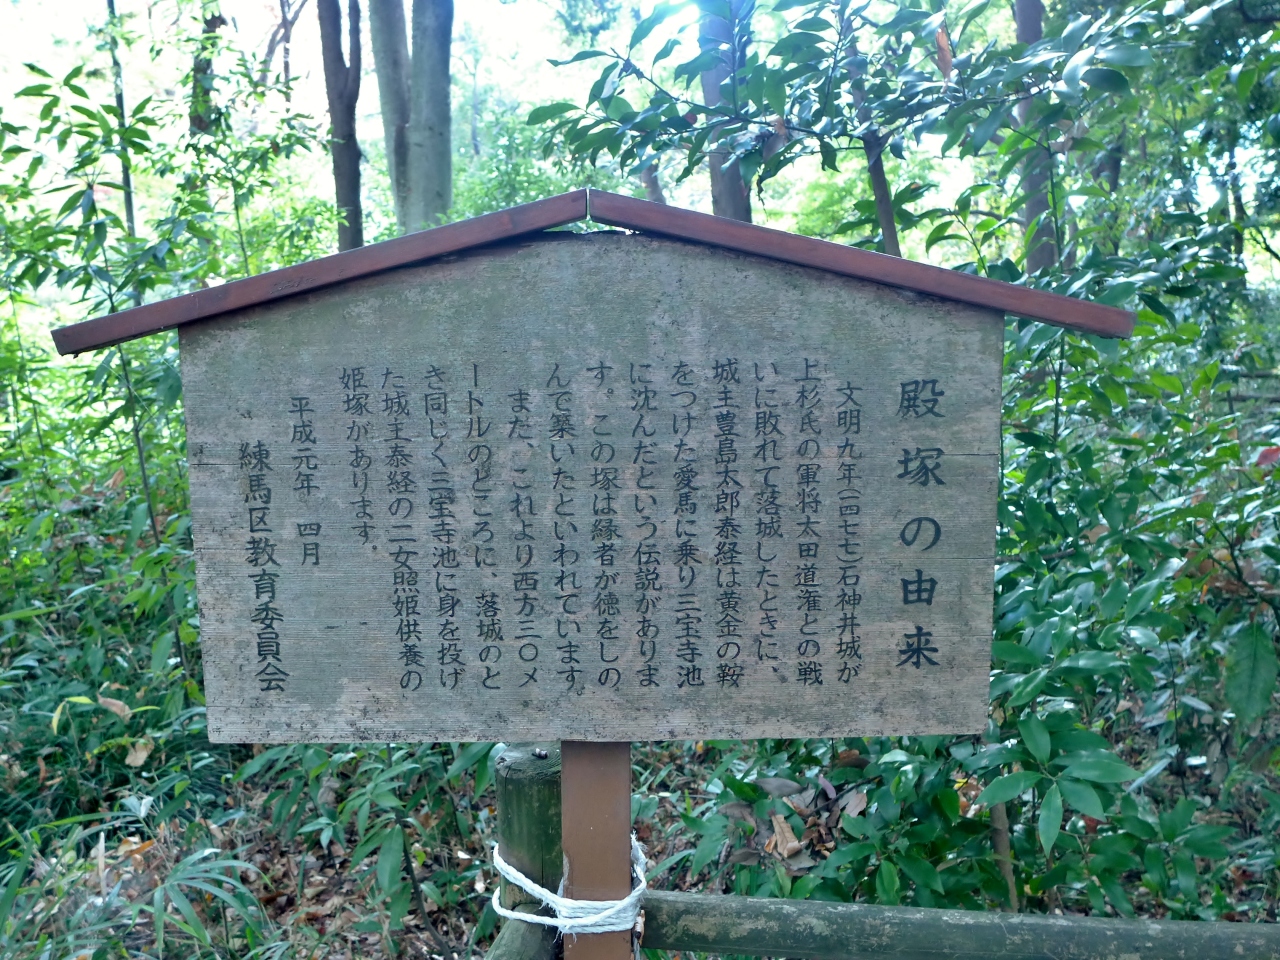 殿塚の由来
文明九年(一四七七)石神井城が
上杉氏の軍将太田道潅との戦
いに敗れて落城したときに、
城主豊島太郎泰経は黄金の鞍
をつけた愛馬に乗り三宝寺池
に沈んだという伝説がありま
す。この塚は縁者が徳をしの
んで築いたといわれています
また、これより西方三〇メ
ートルのところに、落城のと
き同じく三宝寺池に身を投げ
た城主泰経の二女照姫供養の
姫塚があります。
平成元年 四月
練馬区教育委員会